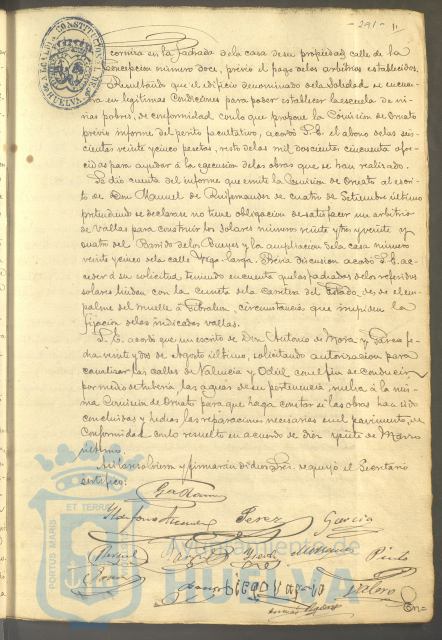 -291-
cornisa en la fachada de la casa de su propiedad, calle de la
Concepcion número doce, previo el pago de los arbitrios establecidos.
Resultando que el edificio denominado de la Soledad se encuen-
tra en legítimas condiciones para poder establecer la escuela de ni-
ñas pobres, de conformidad con lo que propone la Comision de Ornato
previo informe del perito facultativo, acordó S.E. el abono de las seis-
cientas veinte y cinco pesetas, resto de las mil doscientas cincuenta ofre-
cidas para ayudar á la ejecucion de las obras que se han realizado.
Se dió cuenta del informe que emite la Comision de Ornato al escri-
to de Don Manuel de de cuatro de Setiembre último
pretendiendo se declare no tiene obligacion de satisfacer un arbitrio
de vallas para construir los solares número veinte y tres y veinte y
cuatro del Barrio de los Bueyes y la ampliacion de la casa número
veinte y cinco de la calle Vega-larga. Previa discusion acordó S.E. ac-
ceder á su solicitud, teniendo en cuenta que las fachadas de los referidos
solares lindan con la cuneta de la carretera del Estado, desde el em-
palme del muelle á Gibraleon, circunstancia que impiden la
fijacion de los indicados vallas.
S.E. acordó que un escrito de Don Antonio de Mora y Garcia fe-
cha veinte y dos de Agosto último, solicitando autorizacion para
canalizar las calles de Valencia y Odiel con el fin de conducir
por medio de tubería las aguas de su pertenencia, vuelva á la mis-
ma Comision de Ornato para que haga constar si las obras han sido
concluidas y hechas las reparaciones necesarias en el pavimento, de
conformidad con lo resuelto en acuerdo de diez y siete de Marzo
último.
y firmarán dichos Sres. de que yo el Secretario
certifico:
Perez García
Pinto
Diego Vazquez
En=
PORTUS MARIS ET TERRAE
Ayuntamiento de
HUELVA